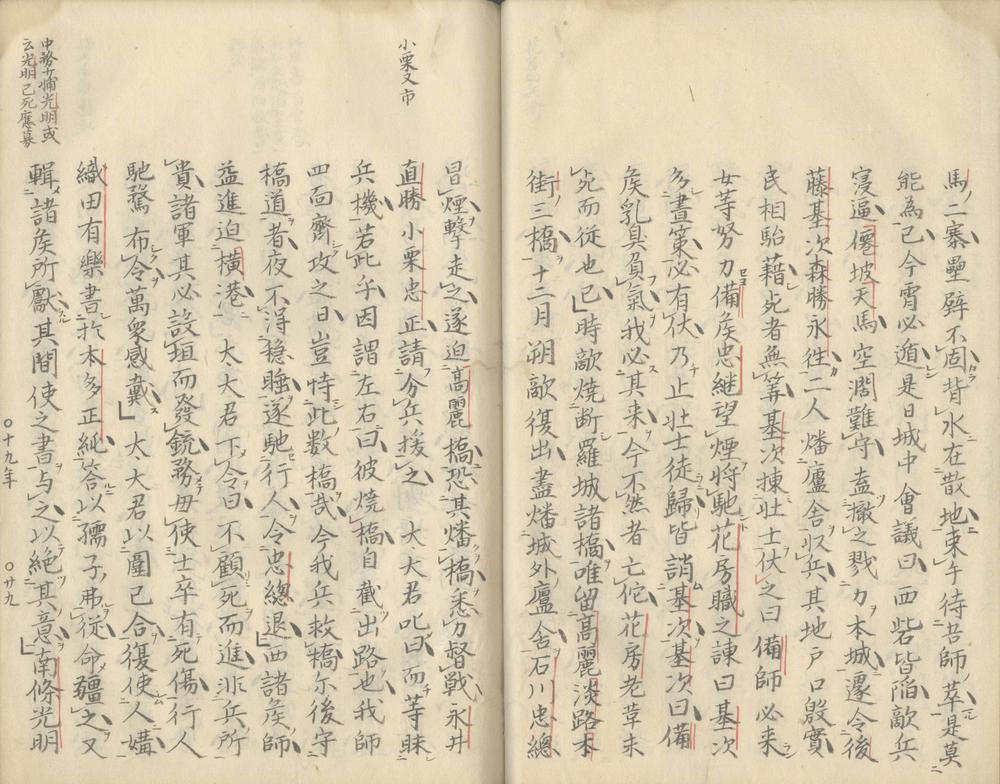 馬二寨壘壁不固背水在散地束午待苦師萃是莫
能為已今宵必遁是日城中會議曰西砦皆陥敵兵
寖逼僊坡天馬空濶難守盍撤之戮力本城遽令後
藤基次森勝永徃二人燔廬舎収兵其地戸口殷實
民相駘藉死者無筭基次揀壮士伏之曰備師必来
女等努力備矦忠継望煙将馳花房職之諌曰基次
多畫策必有伏乃止壮士徒歸皆誚基次基次曰備
矦乳臭負氣我必其来今不然者亡佗花房老草
死而従也已時敵焼断羅城諸橋唯留髙麗淡路本
街三橋十二月朔敵復出盡燔城外廬舎石川忠總
小栗又市
冐煙擊走之遂迫髙麗橋恐其燔橋悉力督戰永井
直勝小栗忠正請分兵援之 大大君叱曰而等昧
兵機若此乎因謂左右曰彼焼橋自截出路也我師
四靣齊攻之日豈恃此数橋哉今我兵救橋尓後守
橋道者夜不得穏睡遂馳行人令忠總退西諸矦師
益進迫横港 大大君下令曰不顧死而進非兵所
貴諸軍其必設垣而發銃務毋使士卒有死傷行人
馳騖布令萬衆感戴 大大君以圍已合復使人媾
中務少輔光明或
云光明已死應募
織田有樂書扵本多正純答以孺子弗従命彊之又
輯諸矦所獻其間使之書与之以絶其意南條光明
〇十九年 〇廿九